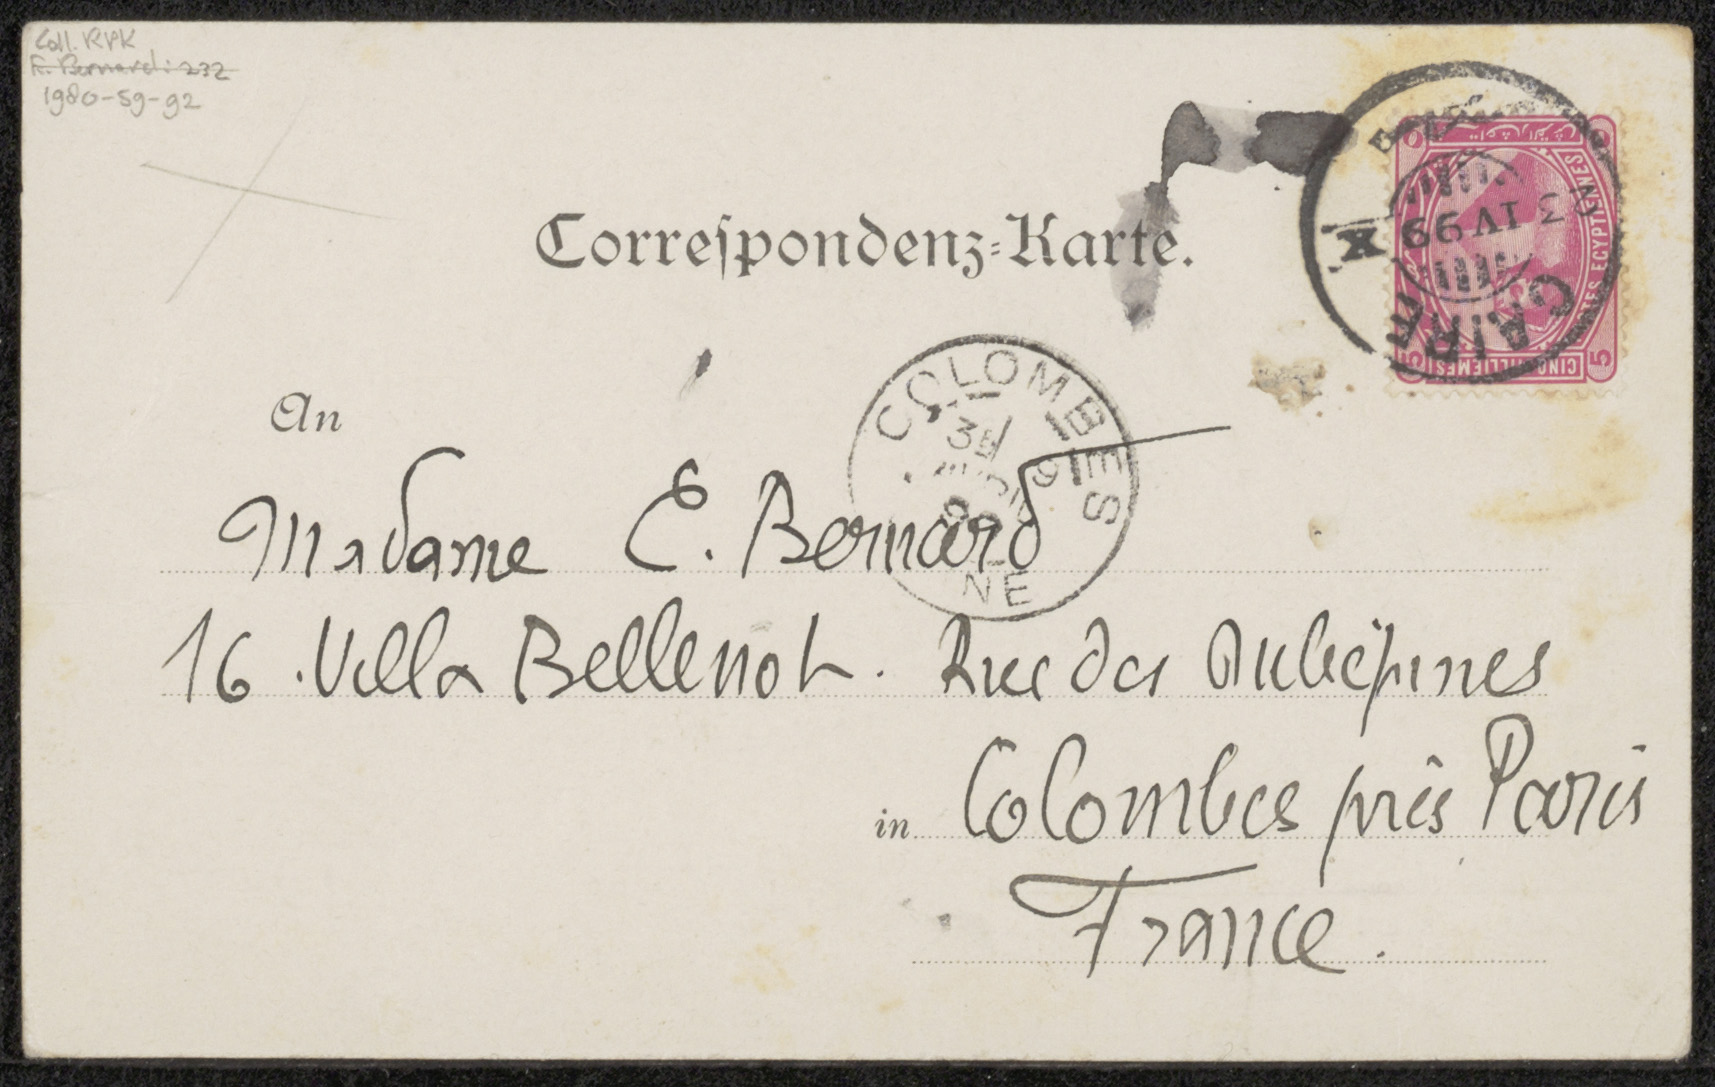 Coll. RPK
R. Bernard: 232
1980-59-92
Correspondenz-Karte.
CAIRE
3 IV 99
X
5
CINQ MILLIEMES
POSTES EGYPTIENNES
COLOMBES
3E
9
99
NE
An
Madame E. Bernard
16. Villa Bellenot. Rue des Aubépines
in Colombes près Paris
France.